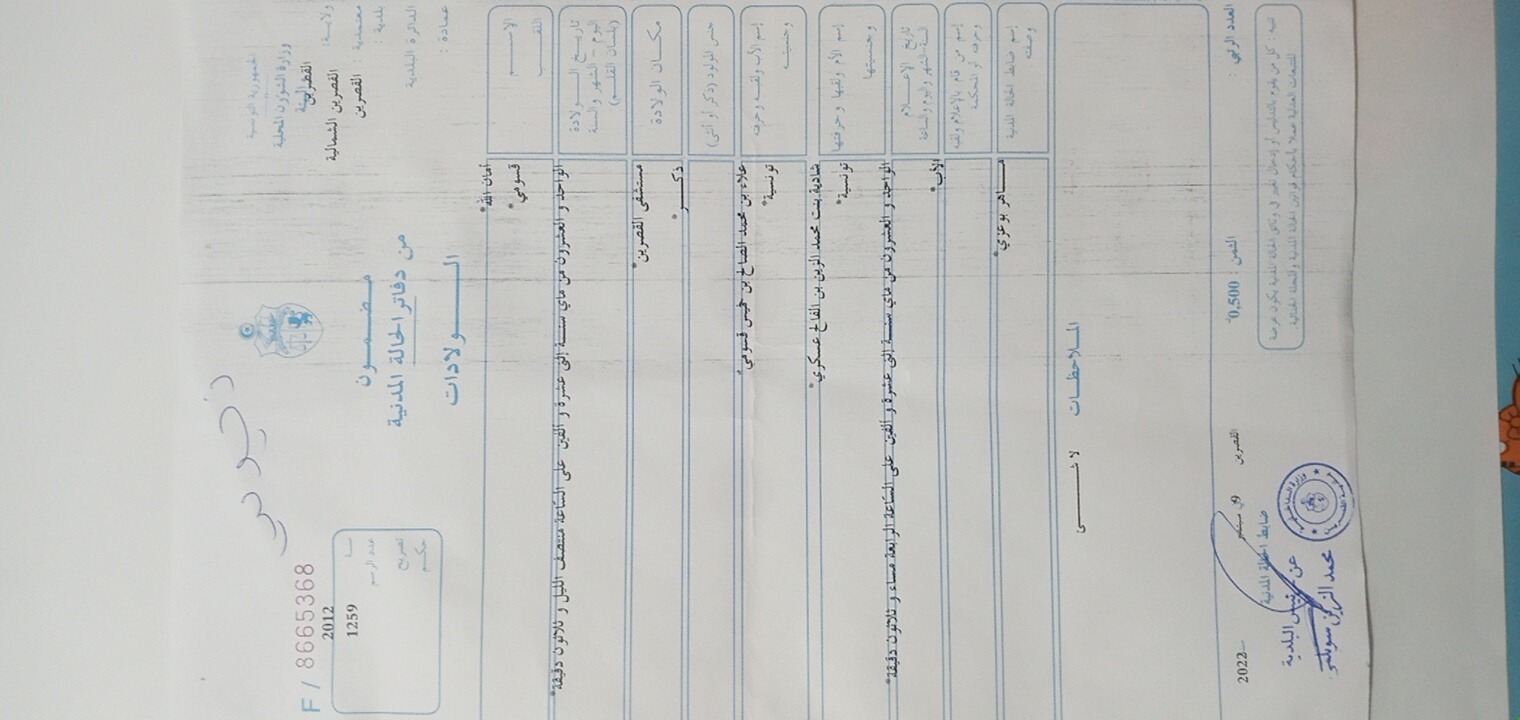 الجمهورية التونسية
وزارة الشؤون المحلية
والبيئة
ولاية: القصرين
معتمدية: القصرين الشمالية
بلدية: القصرين
الدائرة البلدية
عمادة:
مضمون
من دفاتر الحالة المدنية
الولادات
F / 8665368
2012
1259
سنة
عدد الرسم
تصريح
حكم
الاسم
أمان الله*
اللقب
قسومي*
تاريخ الولادة
(اليوم - الشهر والسنة
بلسان القلم)
الواحد و العشرون من ماي سنة إثنى عشرة و الفين على الساعة منتصف الليل و ثلاثون دقيقة*
مكان الولادة
مستشفى القصرين*
جنس المولود (ذكر أو أنثى)
ذكر*
إسم الأب ولقبه وحرفته
علاء بن محمد الصالح بن خميس قسومي*
وجنسيته
تونسية*
إسم الأم ولقبها وحرفتها
شادية بنت محمد الزين بن الفالح عسكري*
وجنسيتها
تونسية*
تاريخ الإعلام
السنة والشهر واليوم والساعة
الواحد و العشرون من ماي سنة إثنى عشرة و الفين على الساعة الرابعة مساء و ثلاثون دقيقة*
إسم من قام بالإعلام ولقبه
وحرفته أو المحكمة
الأب*
إسم ضابط الحالة المدنية
وصفته
ماهر بوعزي*
الملاحظات
لا شيء
العدد الرتبي :
الثمن : 0,500
القصرين في سبتمبر 2022
ضابط الحالة المدنية
عن رئيس البلدية
محمد الزين
تنبيه : كل من يقوم بالتدليس أو إدخال تغيير في وثائق الحالة المدنية يكون عرضة
للتتبعات العدلية عملا بأحكام قوانين الحالة المدنية والمجلة الجنائية